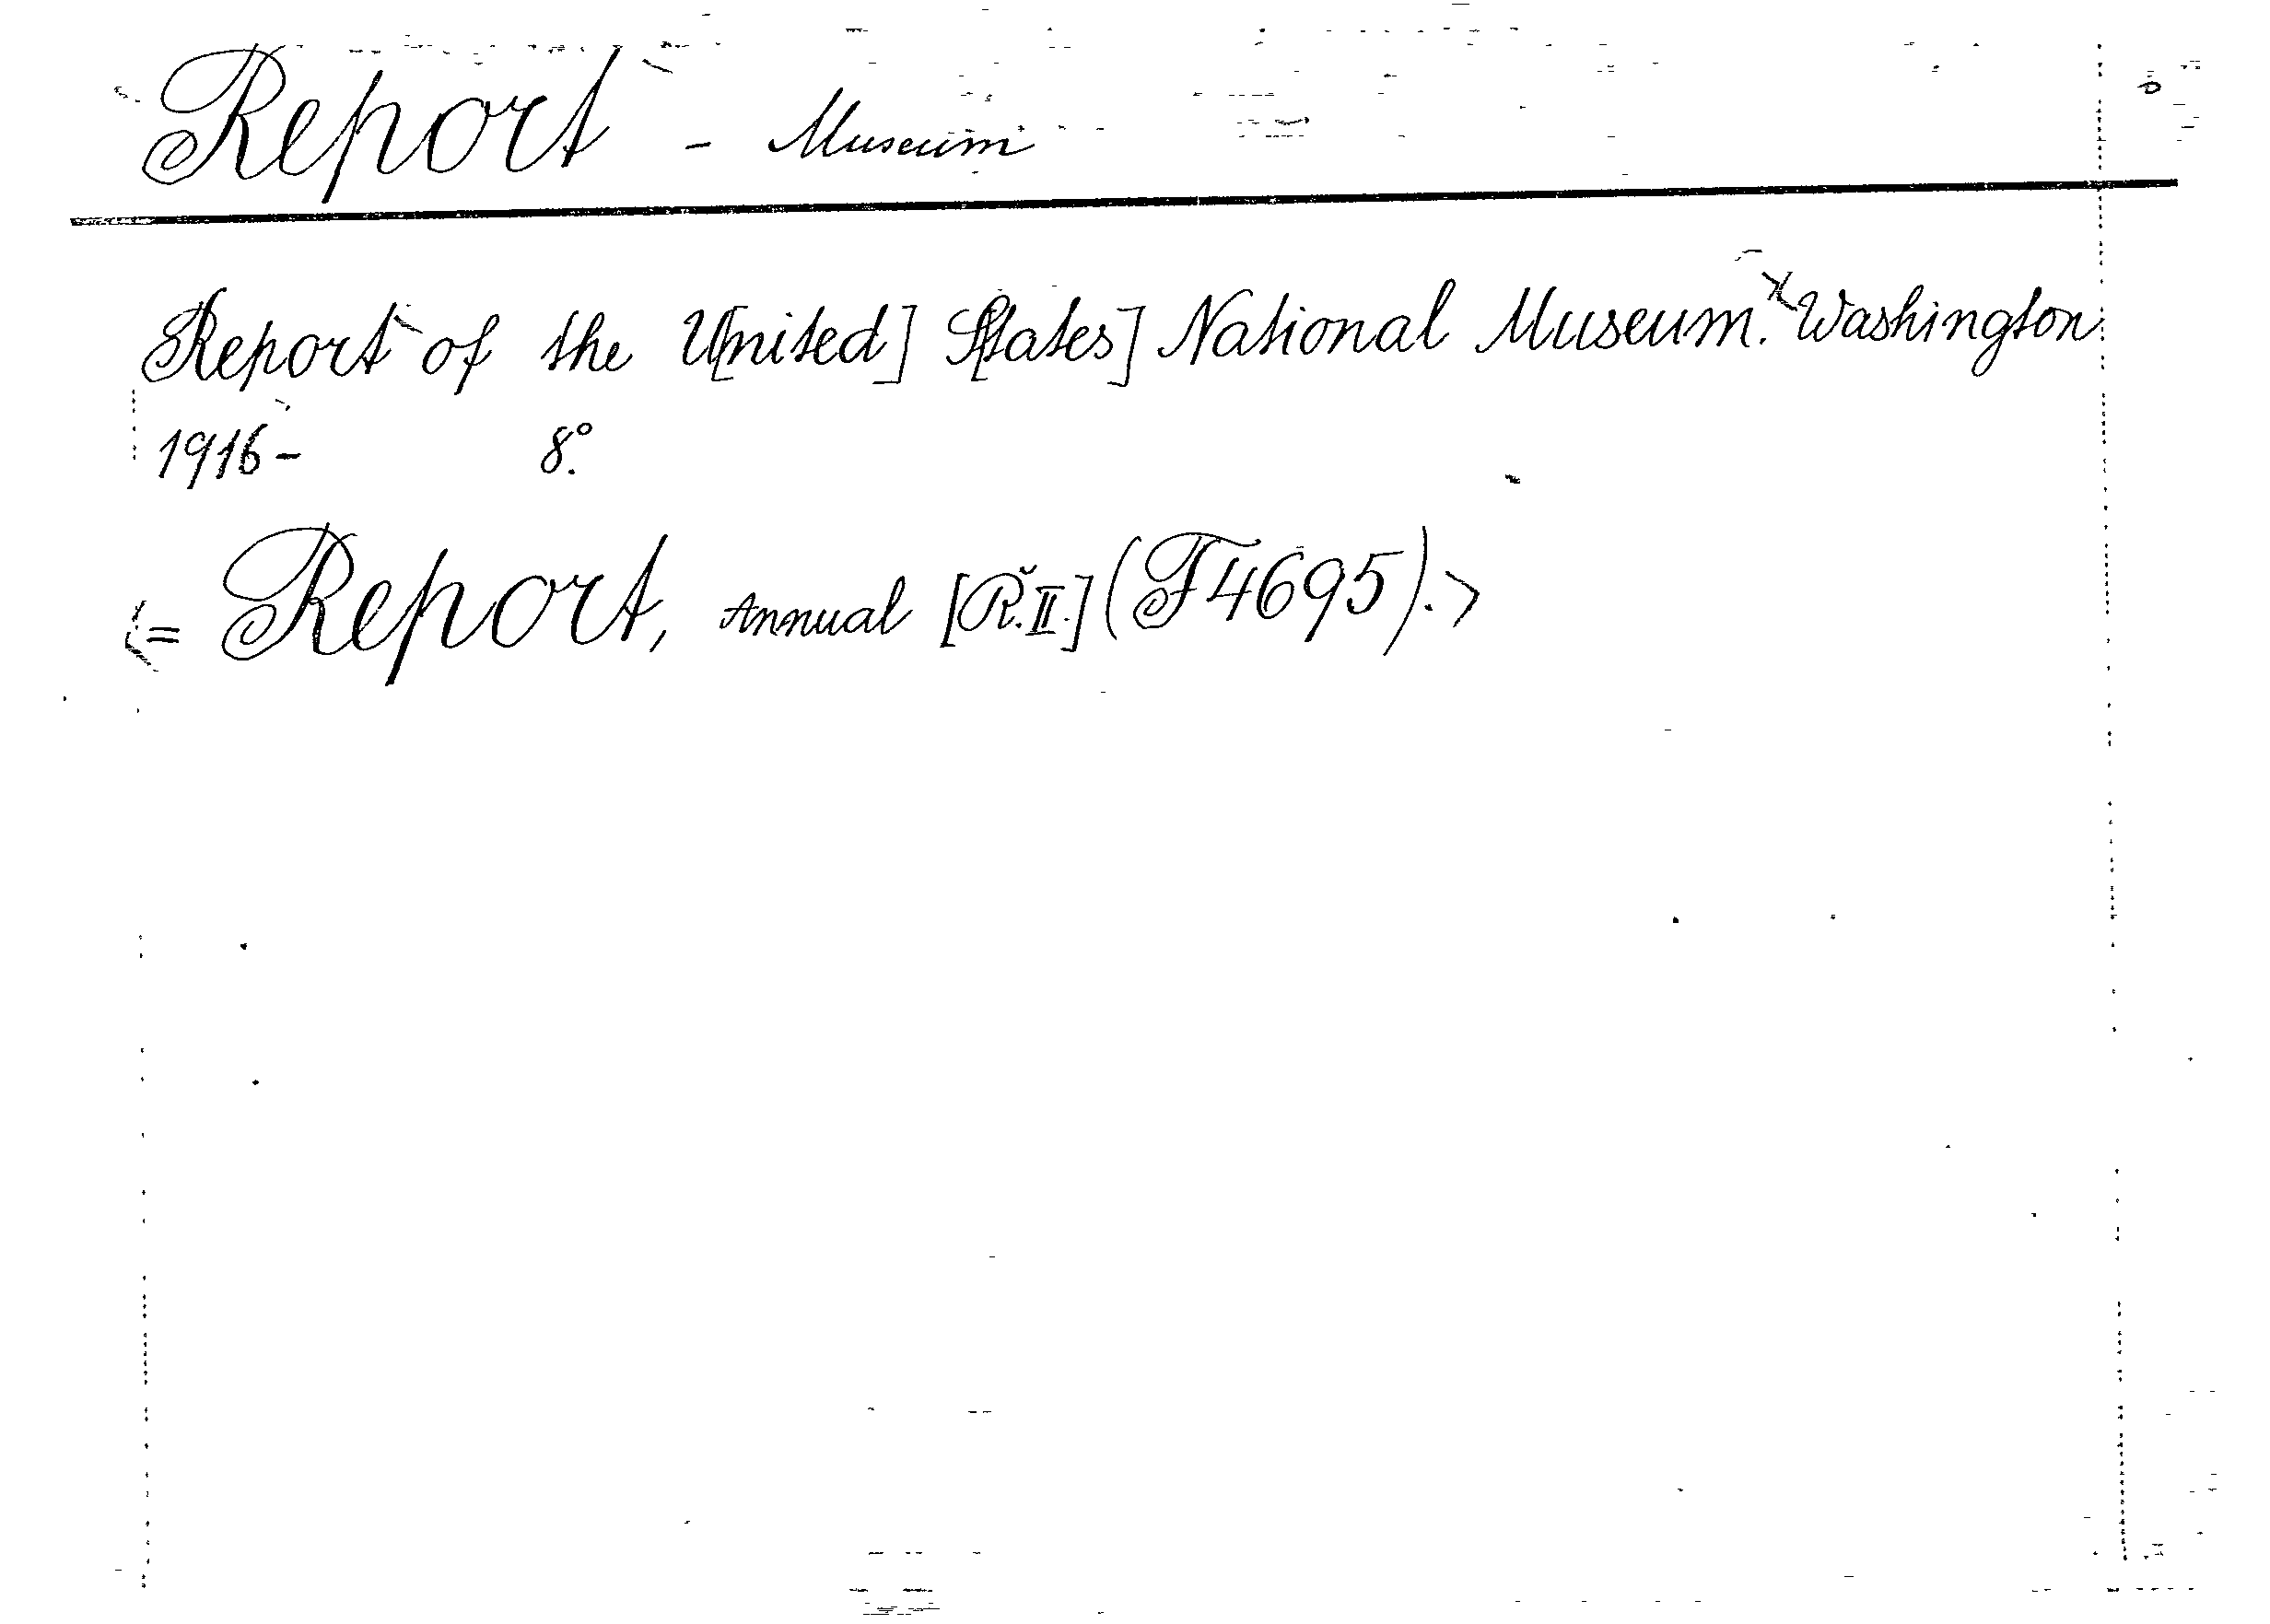 Report - Museum
Report of the U[nited] S[tates] National Museum. Washington
1916- 8°.
<= Report, Annual [Ř.II.] (F4695).>